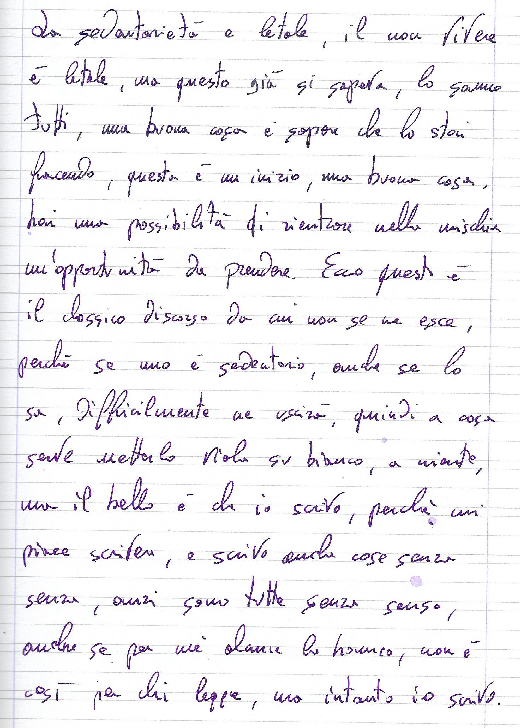 La sedentarietà e letale, il non vivere
è letale, ma questo già si sapeva, lo sanno
tutti, una buona cosa è sapere che lo stai
facendo, questo è un inizio, una buona cosa.
hai una possibilità di rientrare nella mischia
un'opportunità da prendere. Ecco questo è
il classico discorso da cui non se ne esce,
perché se uno è sedentario, anche se lo
sa, difficilmente ne uscirà, quindi a cosa
serve metterlo viola su bianco, a niente,
ma il bello è che io scrivo, perché mi
piace scrivere, e scrivo anche cose senza
senza, anzi sono tutte senza senso,
anche se per mè alcune lo hanno, non è
così per chi legge, ma intanto io scrivo.